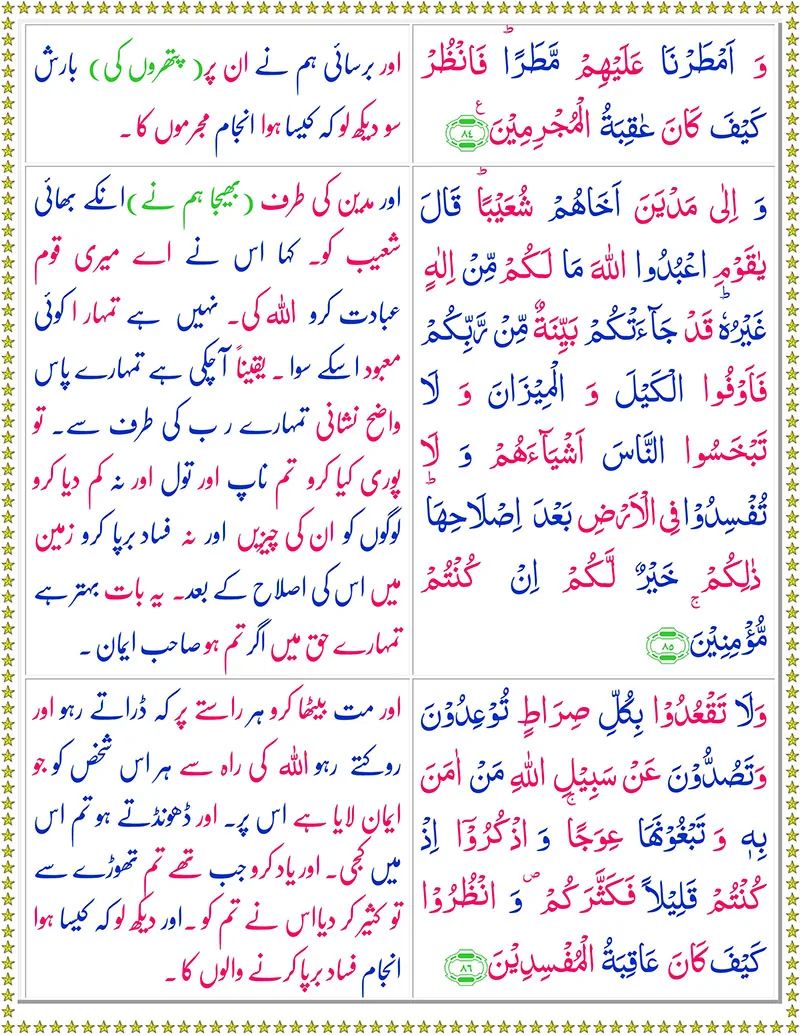 وَ اَمْطَرْنَا عَلَيْهِمْ مَّطَرًا ؕ فَانْظُرْ
كَيْفَ كَانَ عٰقِبَةُ الْمُجْرِمِيْنَ ﴿٨٤﴾ ع
اور برسائی ہم نے ان پر( پتھروں کی) بارش
سو دیکھ لو کہ کیسا ہوا انجام مجرموں کا ۔
وَ اِلٰى مَدْيَنَ اَخَاهُمْ شُعَيْبًا ؕ قَالَ
يٰقَوْمِ اعْبُدُوا اللّٰهَ مَا لَكُمْ مِّنْ اِلٰهٍ
غَيْرُهٗ ؕ قَدْ جَآءَتْكُمْ بَيِّنَةٌ مِّنْ رَّبِّكُمْ
فَاَوْفُوا الْكَيْلَ وَ الْمِيْزَانَ وَ لَا
تَبْخَسُوا النَّاسَ اَشْيَآءَهُمْ وَ لَا
تُفْسِدُوْا فِى الْاَرْضِ بَعْدَ اِصْلَاحِهَا ؕ
ذٰلِكُمْ خَيْرٌ لَّكُمْ اِنْ كُنْتُمْ
مُّؤْمِنِيْنَ ۚ ﴿٨٥﴾
اور مدین کی طرف (بھیجا ہم نے)انکے بھائی
شعیب کو۔ کہا اس نے اے میری قوم
عبادت کرو اللہ کی۔ نہیں ہے تمہار ا کوئی
معبود اسکے سوا ۔ یقیناً آچکی ہے تمہارے پاس
واضح نشانی تمہارے ر ب کی طرف سے۔ تو
پوری کیا کرو تم ناپ اور تول اور نہ کم دیا کرو
لوگوں کو ان کی چیزیں اور نہ فساد برپا کرو زمین
میں اس کی اصلاح کے بعد۔ یہ بات بہتر ہے
تمہارے حق میں اگر تم ہو صاحب ایمان ۔
وَلَا تَقْعُدُوْا بِكُلِّ صِرَاطٍ تُوْعِدُوْنَ
وَتَصُدُّوْنَ عَنْ سَبِيْلِ اللّٰهِ مَنْ اٰمَنَ
بِهٖ وَ تَبْغُوْنَهَا عِوَجًا ۚ وَ اذْكُرُوْۤا اِذْ
كُنْتُمْ قَلِيْلًا فَكَثَّرَكُمْ ۖ وَ انْظُرُوْا
كَيْفَ كَانَ عَاقِبَةُ الْمُفْسِدِيْنَ ﴿٨٦﴾
اور مت بیٹھا کرو ہر راستے پر کہ ڈراتے رہو اور
روکتے رہو اللہ کی راہ سے ہر اس شخص کو جو
ایمان لایا ہے اس پر۔ اور ڈھونڈتے ہو تم اس
میں کجی۔ اور یاد کرو جب تھے تم تھوڑے سے
تو کثیر کر دیااس نے تم کو ۔اور دیکھ لو کہ کیسا ہوا
انجام فساد برپا کرنے والوں کا ۔